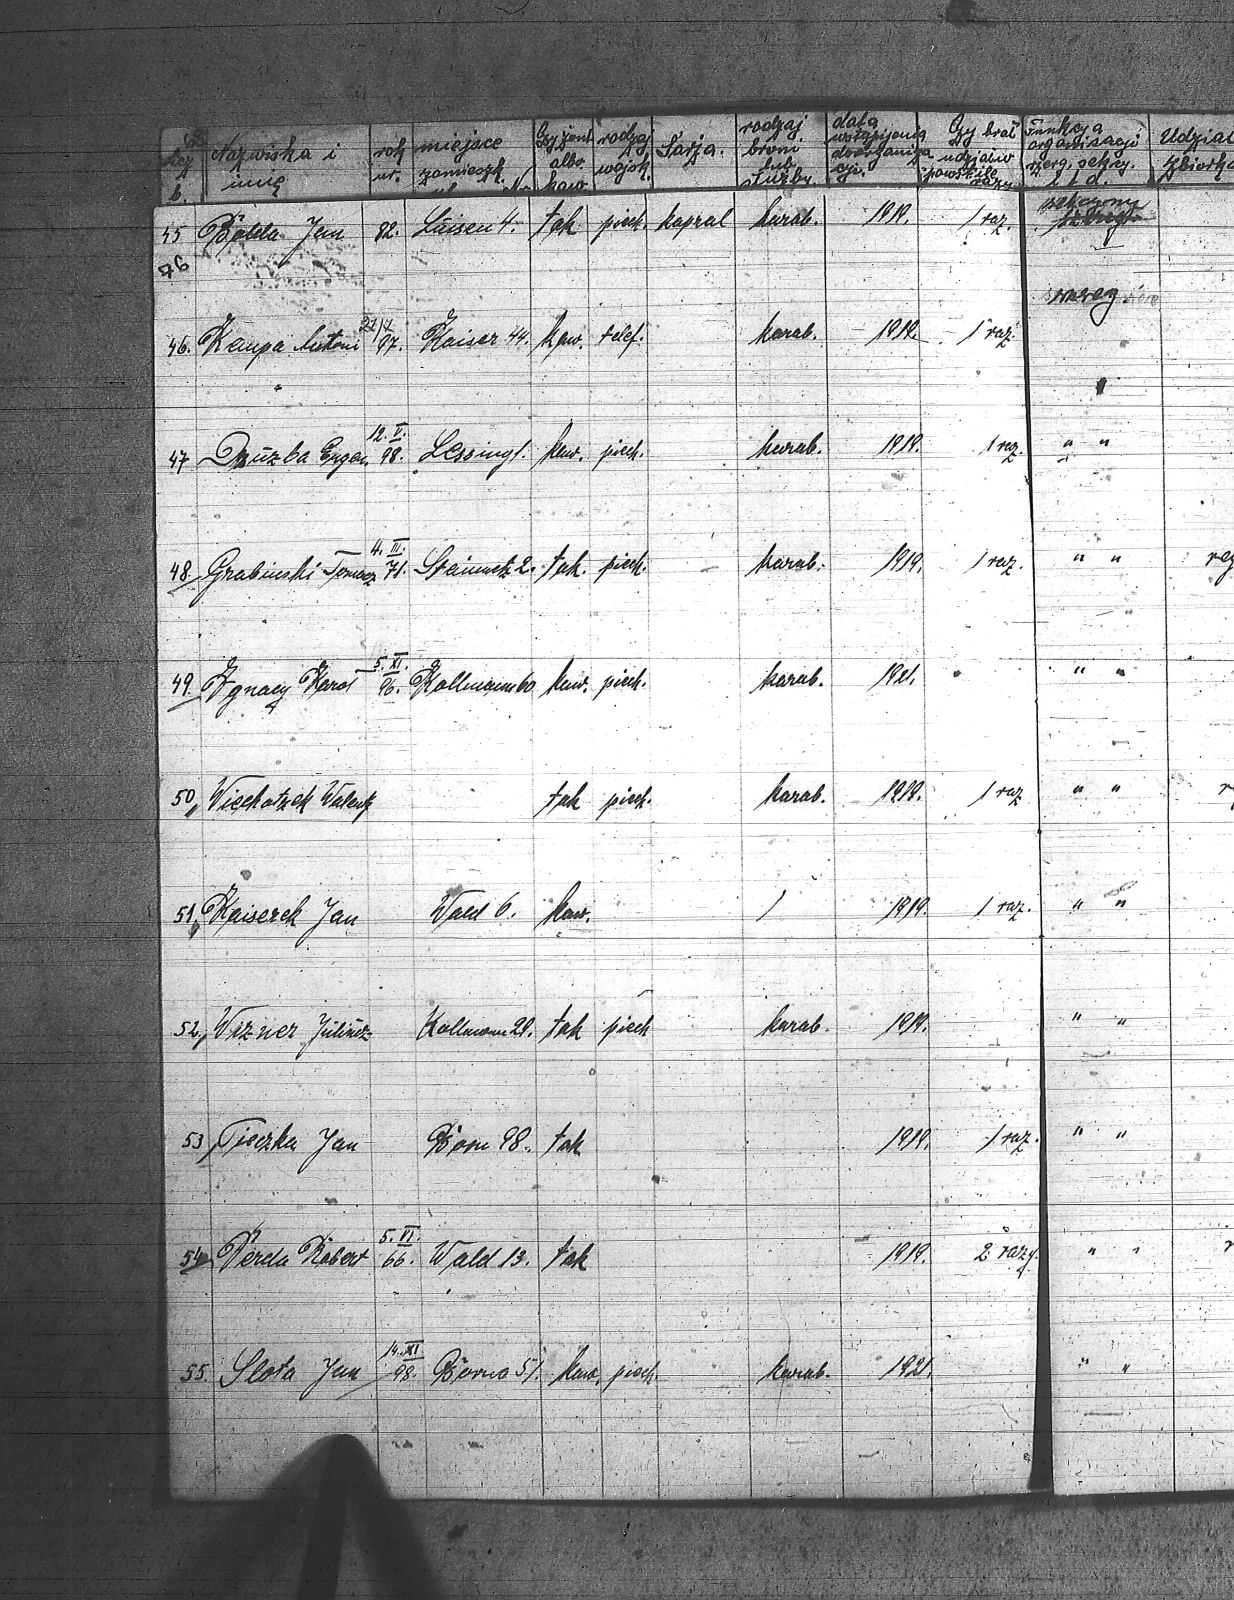 Nazwiska i imię rok ur. miejsce zamieszk. Czy żont. albo kaw. rodzaj wojsk. Szarża. rodzaj broni lub służby. data wstąpienia do organiza cji. Czy brał udział w powst. ile razy Funkcja organisacji szereg, sekrey. i t. d. Udział zbiórka
45 Jan 82. Luisen 4. tak piech. kapral karab. 1919. 1 raz.
76
szereg
46. Kempa Antoni 97. Kaiser 44. kaw. telef. karab. 1919. 1 raz.
47 Drużba Eugen. 12. V. 98. Lessing 1. kaw. piech. karab. 1919. 1 raz. " "
48. Grabinski Tomasz 4. III. 71. Steinmetz 2. tak. piech. karab. 1919. 1 raz. " "
49. Ignacy Karol 5. XI. 96. Kollmann 60 kaw. piech. karab. 1921. " "
50, Wiechotzek Walent. tak piech. karab. 1919. 1 raz " "
51, Kaiserek Jan Wald 6. kaw. / 1919. 1 raz. " "
52, Wizner Kollmann 29. tak piech karab. 1919. " "
53, Tieczka Jan 98. tak 1919. 1 raz. " "
54, Robert 5. VI. 66. Wald 13. tak 1919. 2 razy. " "
55. Slota Jan 14. XI 98. 51. kaw. piech. karab. 1921. " "